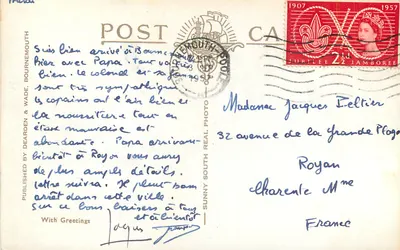 POST CARD
1907 1957
JUBILEE JAMBOREE
2½D
BOURNEMOUTH-POOLE
PUBLISHED BY DEARDEN & WADE, BOURNEMOUTH
SUNNY SOUTH REAL PHOTO
Suis bien arrivé à
hier avec Papa. Tout va
bien. le colonel et sa femme
sont très sympathiques
les copains ont l'air bien
la nourriture tout en
étant mauvaise est
abondante. Papa arrivant
bientôt à Royan vous aurez
de plus amples détails.
lettre suivra. Il pleut sans
arrêt dans cette ville.
Sur ce bons baisers à tous
et à bientôt
With Greetings
Madame Jacques Peltier
32 avenue de la Grande Plage
Royan
Charente Mme
France